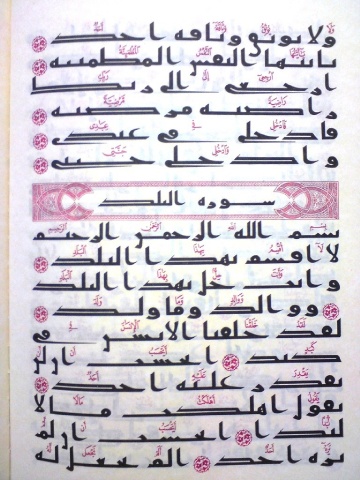 ولا يوثق وثاقه احد
يايتها النفس المطمئنة
ارجعي الى ربك
راضية مرضية
فادخلي في عبدي
وادخلي جنتي
سورة البلد
بسم الله الرحمن الرحيم
لا اقسم بهذا البلد
وانت حل بهذا البلد
ووالد وما ولد
لقد خلقنا الانسن في
كبد ايحسب ان لن
يقدر عليه احد
يقول اهلكت مالا
لبدا ايحسب ان لم
يره احد الم نجعل له